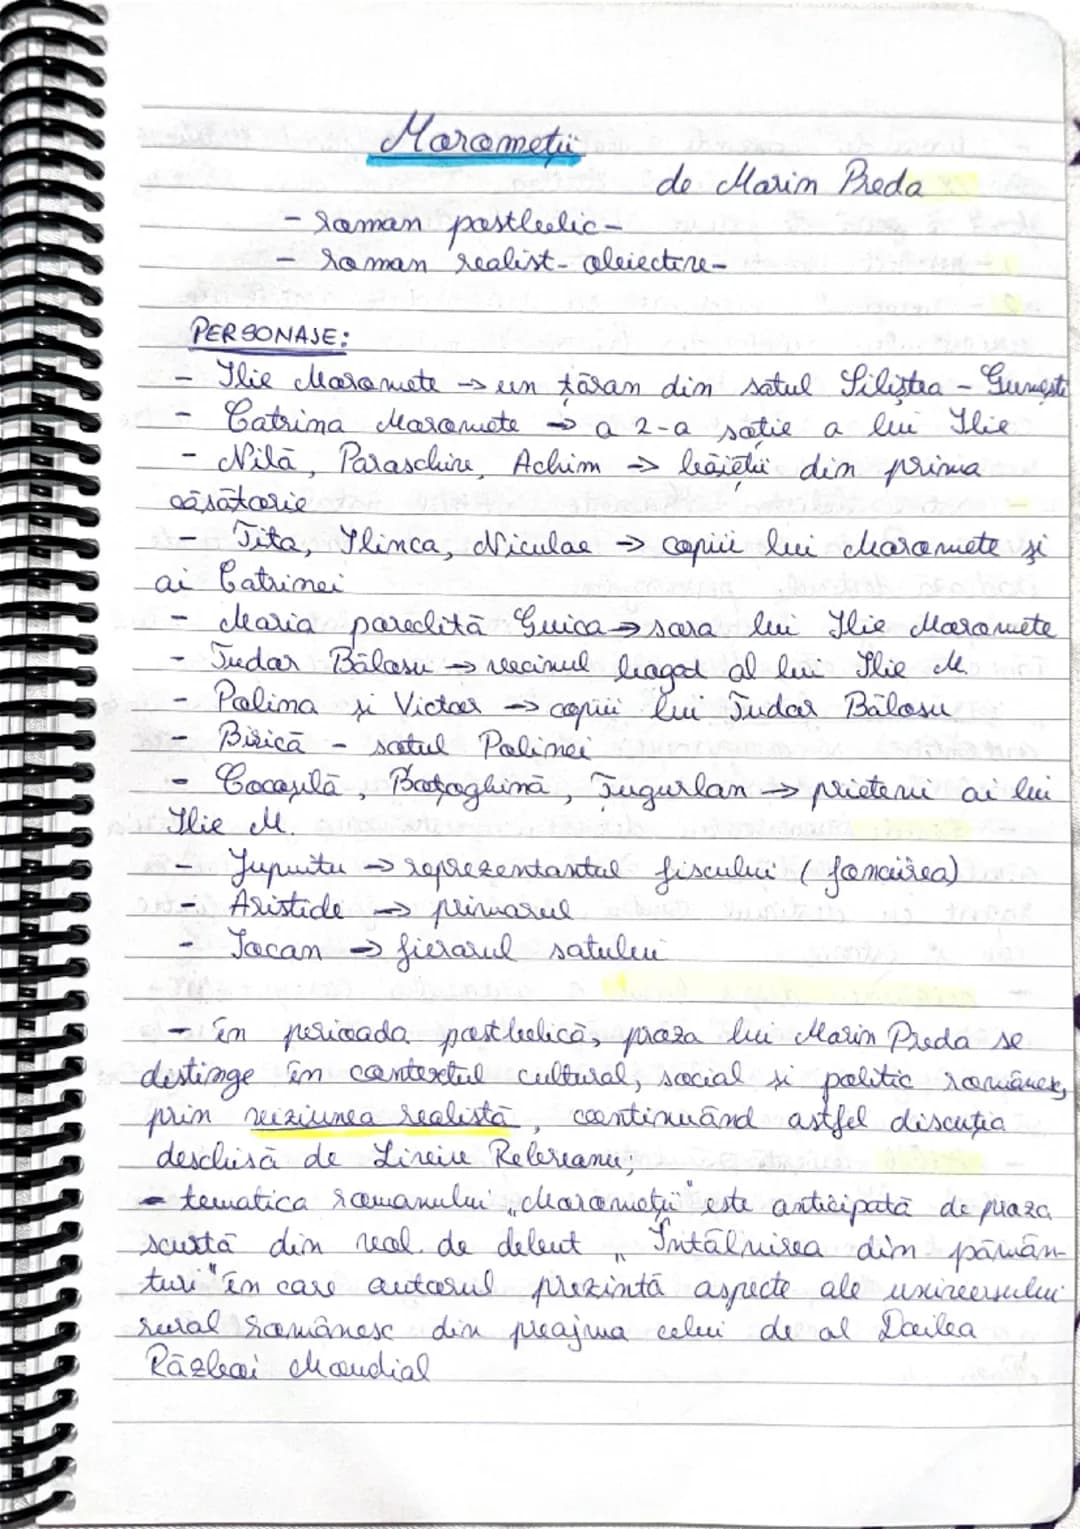 Moromeții
de Marin Preda
- roman postbelic -
- roman realist - obiectiv -
PERSONAJE:
- Ilie Moromete → un țăran din satul Siliștea - Gumești
- Catrina Moromete → a 2-a soție a lui Ilie
- Nilă, Paraschiv, Achim → băieții din prima
căsătorie
- Tita, Ilinca, Niculae → copiii lui Moromete și
ai Catrinei
- Maria poreclită Guica → sora lui Ilie Moromete
- Tudor Bălosu → vecinul bogat al lui Ilie M.
- Polina și Victor → copiii lui Tudor Bălosu
- Birică - soțul Polinei
- Cocoșilă, Boțoghină, Țugurlan → prieteni ai lui
Ilie M.
- Jupuitu → reprezentantul fiscului (fonciirea)
- Aristide → primarul
- Iocan → fierarul satului
- în perioada postbelică, proza lui Marin Preda se
distinge în contextul cultural, social și politic românesc,
prin viziunea realistă, continuând astfel discuția
deschisă de Liviu Rebreanu;
- tematica romanului „Moromeții" este anticipată de proza
scurtă din vol. de debut „Întâlnirea din pămân-
turi" în care autorul prezintă aspecte ale universului
rural românesc din preajma celui de al Doilea
Război Mondial